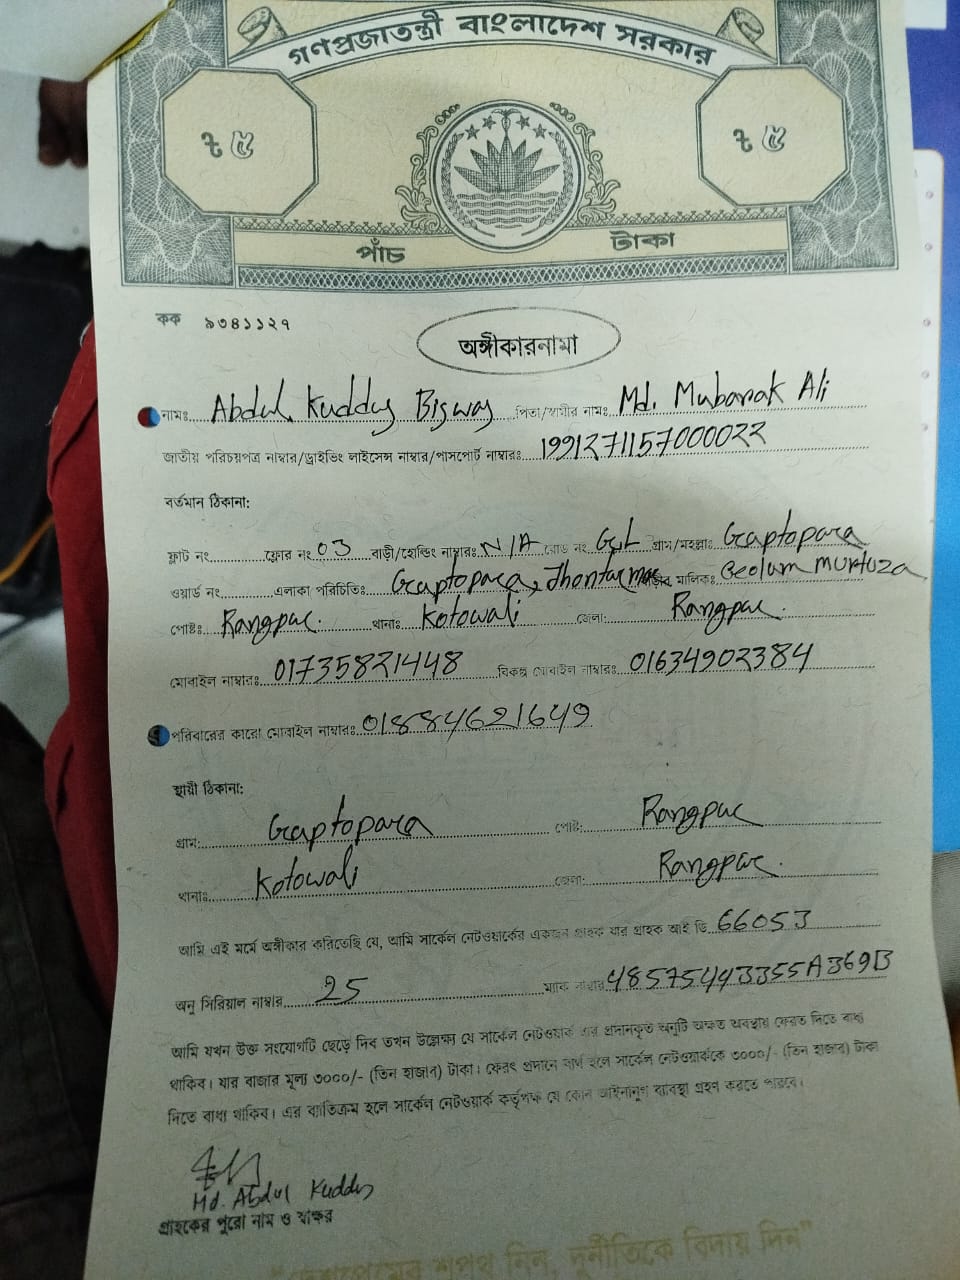 গণপ্রজাতন্ত্রী বাংলাদেশ সরকার
৳ ৫ ৳ ৫
পাঁচ টাকা
কক ৯৩৪১১২৭
অঙ্গীকারনামা
নামঃ Abdul Kuddus Biswas পিতা/স্বামীর নামঃ Md. Mubarak Ali
জাতীয় পরিচয়পত্র নাম্বার/ড্রাইভিং লাইসেন্স নাম্বার/পাসপোর্ট নাম্বারঃ 1991271157000022
বর্তমান ঠিকানা:
ফ্লাট নং ফ্লোর নং 03 বাড়ী/হোল্ডিং নাম্বারঃ N/A রোড নং গ্রাম/মহল্লাঃ Guptopara
ওয়ার্ড নং এলাকা পরিচিতিঃ Guptopara, মালিকঃ Golam Murtuza
পোষ্টঃ Rangpur. থানাঃ Kotowali জেলা: Rangpur.
মোবাইল নাম্বারঃ 01735821448 বিকল্প মোবাইল নাম্বারঃ 01634902384
পরিবারের কারো মোবাইল নাম্বারঃ 01884621649
স্থায়ী ঠিকানা:
গ্রাম: Guptopara পোষ্ট: Rangpur
থানাঃ Kotowali জেলা: Rangpur.
আমি এই মর্মে অঙ্গীকার করিতেছি যে, আমি সার্কেল নেটওয়ার্কের একজন গ্রাহক যার গ্রাহক আই ডি 66053
অনু সিরিয়াল নাম্বার 25 ম্যাক নাম্বার 48575443355A369B
আমি যখন উক্ত সংযোগটি ছেড়ে দিব তখন উল্লেক্ষ্য যে সার্কেল নেটওয়ার্ক এর প্রদানকৃত অনুটি অক্ষত অবস্থায় ফেরত দিতে বাধ্য
থাকিব। যার বাজার মূল্য ৩০০০/- (তিন হাজার) টাকা। ফেরৎ প্রদানে ব্যর্থ হলে সার্কেল নেটওয়ার্ককে ৩০০০/- (তিন হাজার) টাকা
দিতে বাধ্য থাকিব। এর ব্যতিক্রম হলে সার্কেল নেটওয়ার্ক কর্তৃপক্ষ যে কোন আইনানুগ ব্যবস্থা গ্রহণ করতে পারবে।
Md. Abdul Kuddus
গ্রাহকের পুরো নাম ও স্বাক্ষর
"দেশপ্রেমের শপথ নিন, দুর্নীতিকে বিদায় দিন"